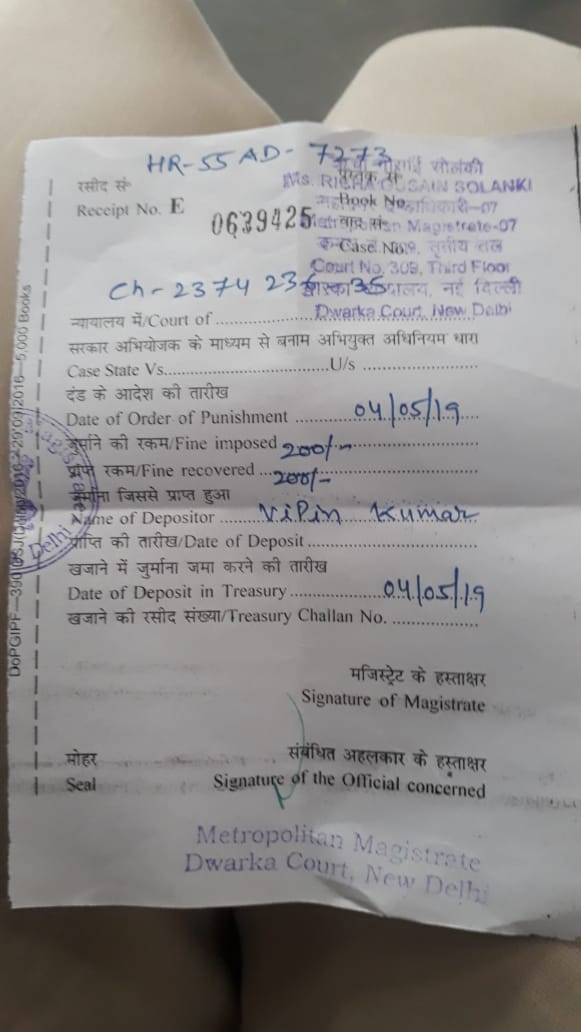 HR-55 AD-7273
रसीद सं॰
Receipt No. E 0639425
सोलंकी
Ms. RICHA GUSAIN SOLANKI
Book No.
Metropolitan Magistrate-07
Case No.
तृतीय तल
Court No. 309, Third Floor
नई दिल्ली
Dwarka Court, New Delhi
Ch-2374 35
न्यायालय में/Court of
सरकार अभियोजक के माध्यम से बनाम अभियुक्त अधिनियम धारा
Case State Vs. U/s
दंड के आदेश की तारीख
Date of Order of Punishment 04/05/19
जुर्माने की रकम/Fine imposed 200/-
प्राप्त रकम/Fine recovered 200/-
जुर्माना जिससे प्राप्त हुआ
Name of Depositor ViPin Kumar
प्राप्ति की तारीख/Date of Deposit
खजाने में जुर्माना जमा करने की तारीख
Date of Deposit in Treasury 04/05/19
खजाने की रसीद संख्या/Treasury Challan No.
मजिस्ट्रेट के हस्ताक्षर
Signature of Magistrate
मोहर संबंधित अहलकार के हस्ताक्षर
Seal Signature of the Official concerned
Metropolitan Magistrate
Dwarka Court, New Delhi
Delhi
29/09/2016—5,000 Books